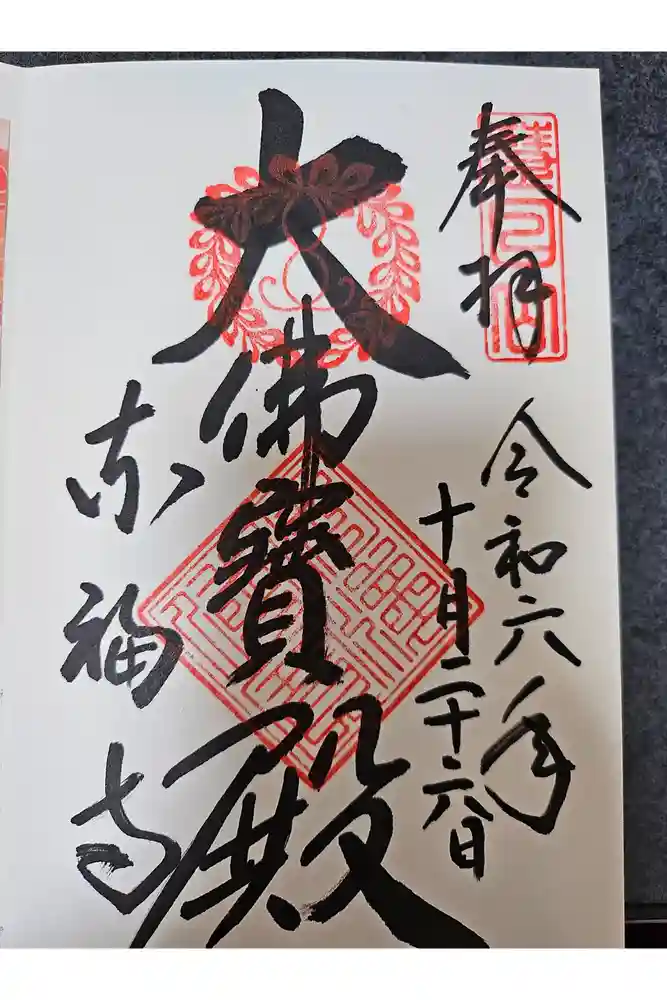 奉拝
令和六年
十月二十六日
大佛寳殿
东福寺